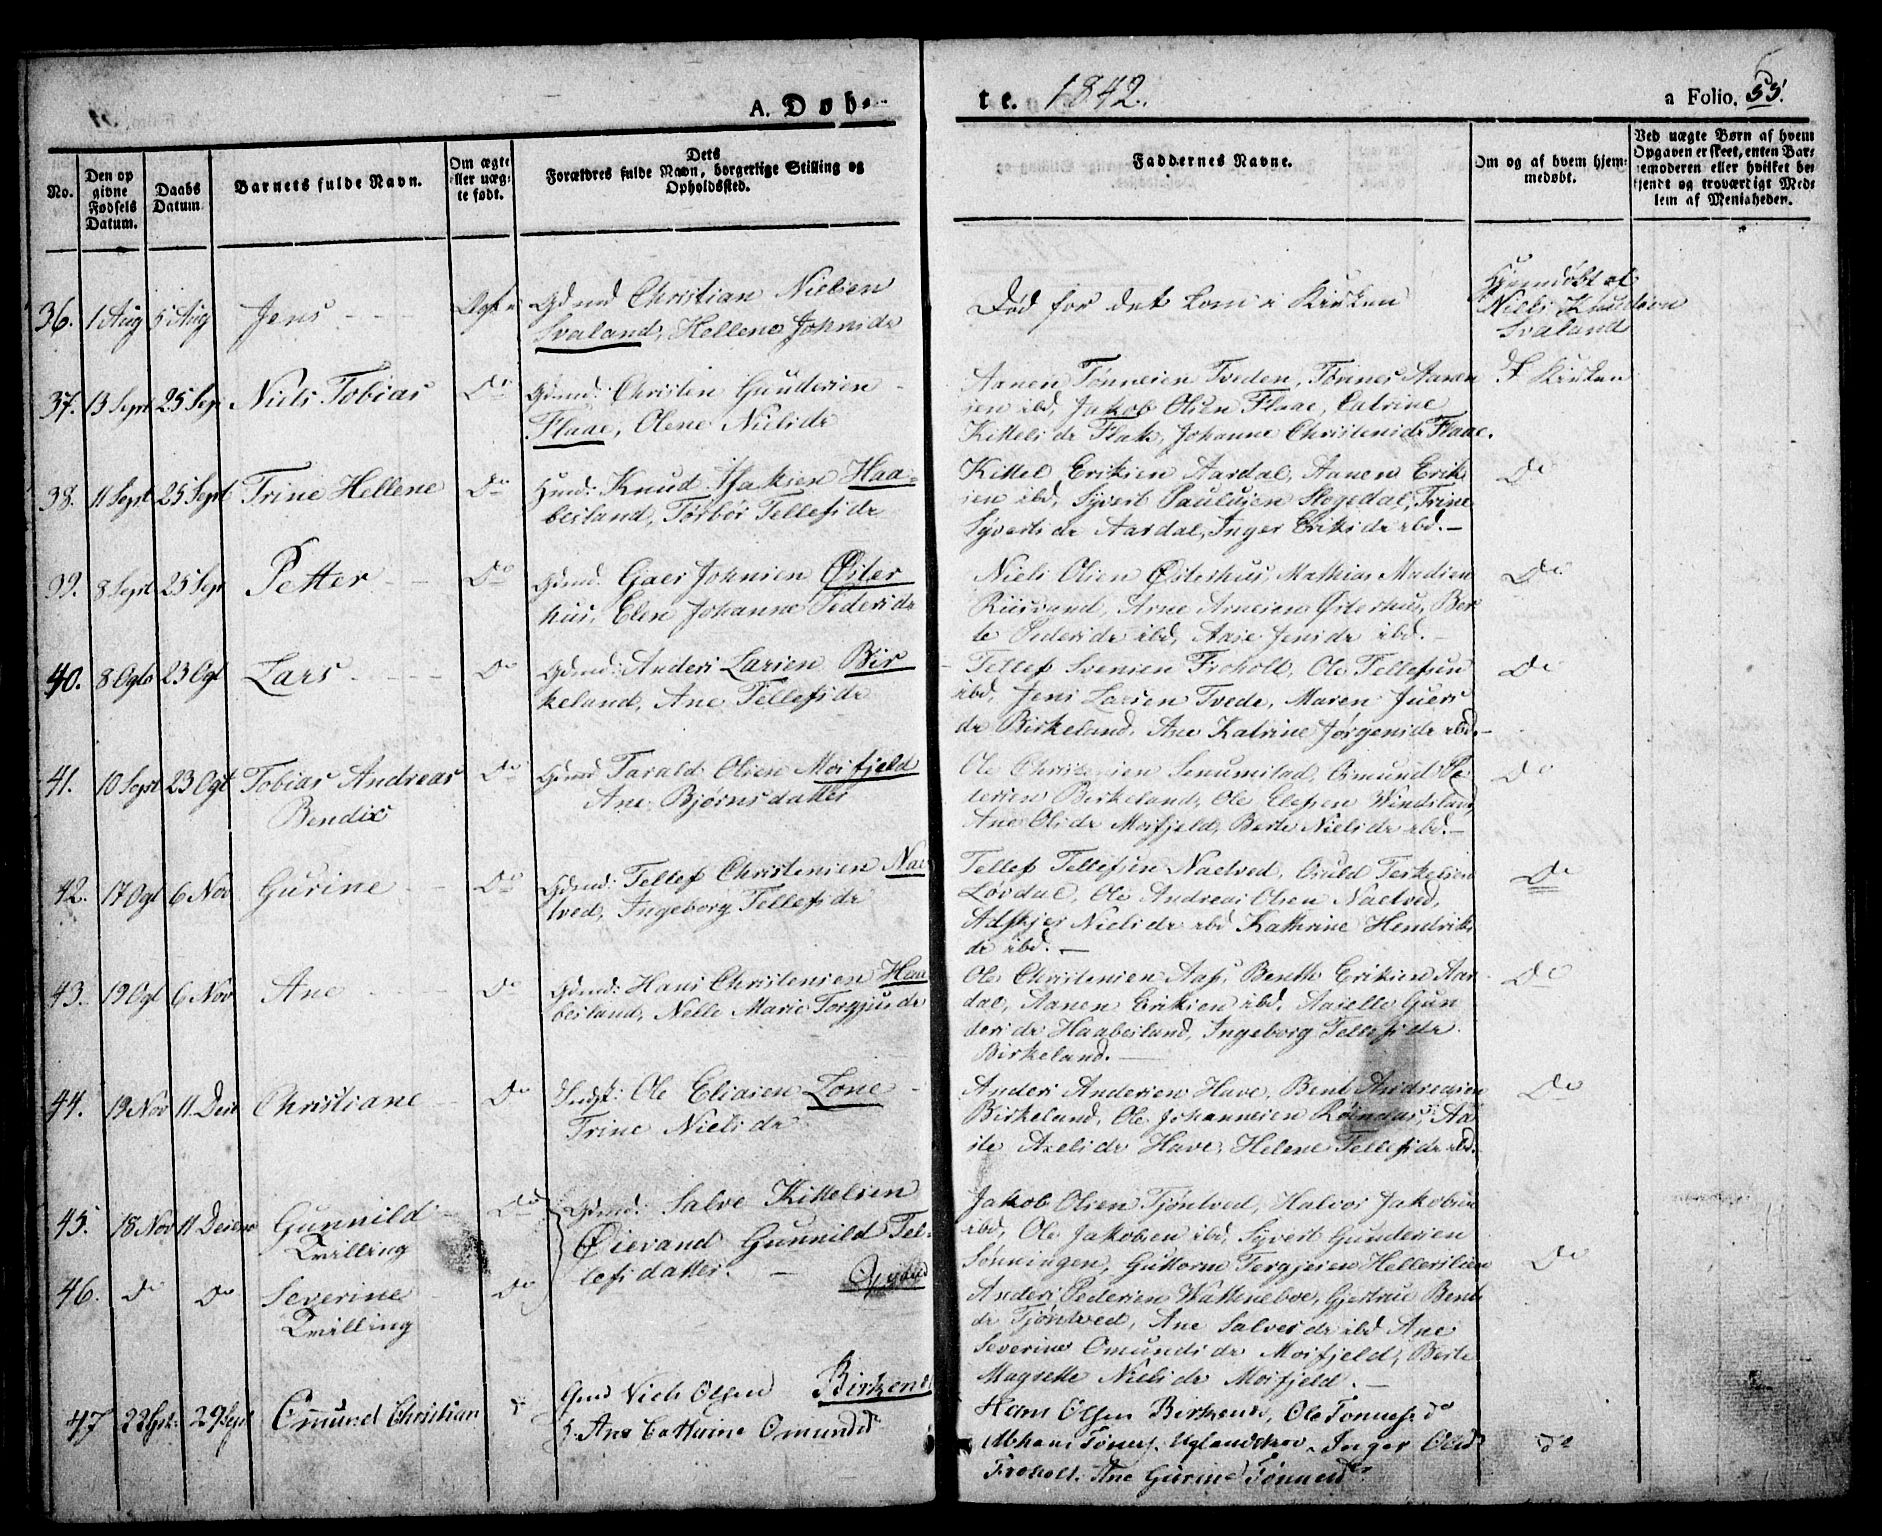 A. Døb-
te. 1842.
a Folio, 55.
No.
Den op
givne
Fødsels
Datum.
Daabs
Datum
Barnets fulde Navn.
Om ægte
eller uæg-
te født.
Dets
Forældres fulde Navn, borgerlige Stilling og
Opholdssted.
Faddernes Navne.
Om og af hvem hjem-
medøbt.
Ved uægte Børn af hvem
Opgaven er skeet, enten Bar-
nemoderen eller hvilket be-
kjendt og troværdigt Med-
lem af Menigheden.
36. 1 Aug 5 Aug Jens Ægte Gdmd Christian Nielsen
Svaland, Hellene Johnsdr
Død før det kom i Kirken
Hjemdøbt af
Niels Knudsen
Svaland
37. 13 Sept 25 Sep Niels Tobias Do Gdmd: Christen Gundersen
Flaae, Olene Nielsdr
Aanen Tønnesen Tveden, Tønnes Aanen
sen ibd, Jakob Olsen Flaae, Catrine
Kittelsdr Flak, Johanne Christensdr Flaae.
I Kirken
38. 11 Sept 25 Sept Trine Hellene Do Hmd: Knud Isaksen Haa-
besland, Torbør Tellefsdr
Kittel Eriksen Aardal, Aanen Erik
sen ibd, Syvert Paulusen Skogedal, Trine
Syvertsdr Aardal, Inger Eriksdr ibd.
Do
39. 8 Sept 25 Sep Petter Do Gdmd: Johnsen Øster
hus, Elen Johanne Pedersdr
Niels Olsen Østerhus, Mathias Madsen
Risvand, Arne Arnesen Østerhus, Ber
te Pedersdr ibd, Aase Jensdr ibd.
Do
40. 8 Ogto 23 Ogt Lars Do Gdmd: Anders Larsen Bir
keland, Ane Tellefsdr
Tellef Svensen Froholt, Ole Tellefsen
ibd, Jens Larsen Tvede, Maren Juers
dr Birkeland, Ane Katrine Jørgensdr ibd.
Do
41. 10 Sept 23 Ogt Tobias Andreas
Bendix Do Gdmd Tarald Olsen Mosfjeld
Ane Bjørnsdatter
Ole Christensen Senumstad, Omund Pe
dersen Birkeland, Ole Elefsen Windsland,
Ane Olsdr Mosfjeld, Berte Nielsdr ibd.
Do
42. 17 Ogt 6 Nov Gurine Do Gdmd: Tellef Christensen Nae
tved, Ingeborg Tellefsdr
Tellef Tellefsen Naetved, Osuld Terkelsen
Løvdal, Ole Andreas Olsen Naetved,
Nielsdr ibd Kathrine Hendriks
dr ibd.
Do
43. 19 Ogt 6 Nov Ane Do Gdmd: Hans Christensen Haa
besland, Nelle Marie Torgjusdr
Ole Christensen Aas, Benth Eriksen Aar
dal, Aanen Eriksen ibd, Gun
dersdr Haabesland, Ingeborg Tellefsdr
Birkeland.
Do
44. 19 Nov 11 Dese Christiane Do Ole Eliasen Tone
Trine Nielsdr
Anders Andersen Have, Bent Andreasen
Birkeland, Ole Johannesen Aa
Axelsdr Have, Helene Tellefsdr ibd.
Do
45. 18 Nov 11 Desem Gunnild
Tvilling Do
Gdmd: Salve Kittelsen
Øievand Gunnild Tel-
lefsdatter.
46. Do Do Severine
Tvilling Do
Jakob Olsen Tjøntved, Halvor Jakobsen
ibd, Ole Jakobsen ibd, Syvert Gundersen
Sønningen, Guttorm Tergjesen Hellerslien
Anders Pedersen Watneboe, Gjertrue Bents
dr Tjøntved, Ane Salvesdr ibd Ane
Severine Omundsdr Mosfjeld, Berte
Magrette Nielsdr Mosfjeld.
Do
47 22 29 Sept Omund Christian Gmd Niels Olsen Birkenes
Ane Cathrine Omundsd
Hans Olsen Birkenes, Ole Tønnes. do
Tønnes. Uglandskov Inger Olsd
Froholt. Ane Gurine Tønnesd
do